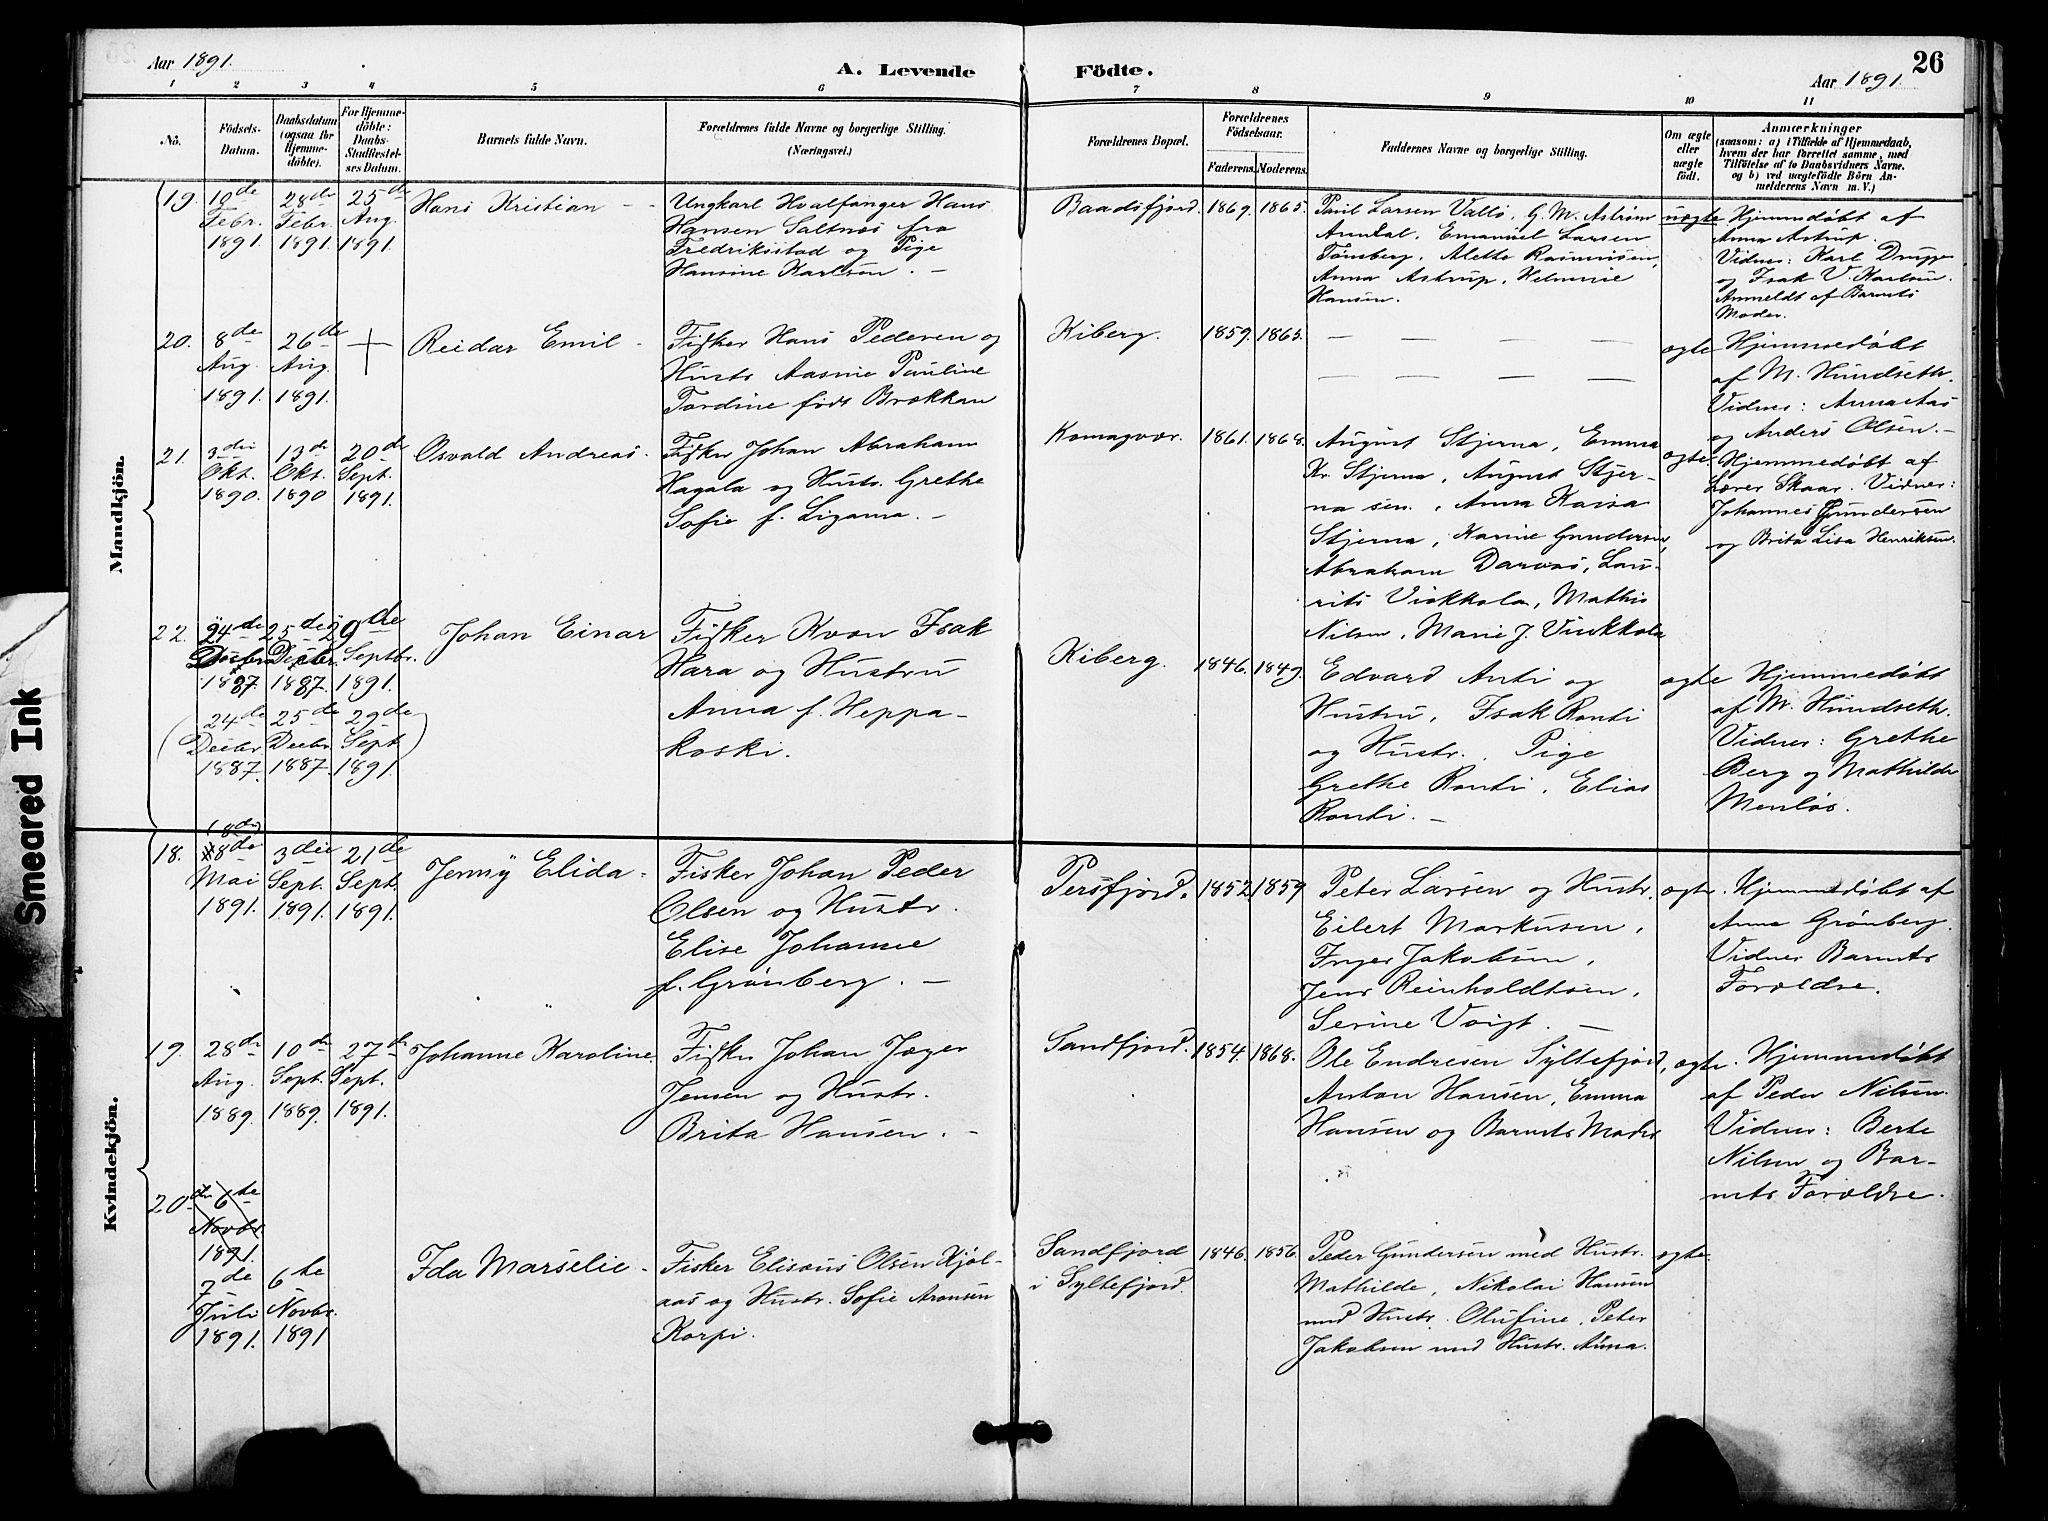 Aar 1891.
A. Levende Födte.
Aar 1891
26
1 2 3 4 5 6 7 8 9 10 11
No.
Födsels-
Datum.
Daabsdatum
(ogsaa for
Hjemme-
döbte).
For Hjemme-
döbte:
Daabs-
Stadfæstel-
ses Datum.
Barnets fulde Navn.
Forældrenes fulde Navne og borgerlige Stilling.
(Næringsvei.)
Forældrenes Bopæl.
Forældrenes
Födselsaar.
Faderens. Moderens.
Faddernes Navne og borgerlige Stilling.
Om ægte
eller
uægte
födt.
Anmærkninger
(saasom: a) i Tilfælde af Hjemmedaab,
hvem der har forrettet samme, med
Tilföielse af to Daabsvidners Navne.
og b) ved uægtefödte Börn An-
melderens Navn m. V.)
Mandkjön.
19.
10de
Febr.
1891.
28de
Febr.
1891.
25de
Aug.
1891.
Hans Kristian
Ungkarl Hvalfanger Hans
Hansen Saltnæs fra
Fredriksstad og Pige
Hansine Karlsen. –
Baadsfjord.
1869.
1865.
Paul Larsen Vallö, G. M. Aström
Arendal, Emanuel Larsen
Tönsberg, Alette Rasmusen,
Anna Astrup, Helmine
Hansen.
uægte
Hjemmedøbt af
Anna Astrup.
Vidner: Karl
og Isak V. Karlsen.
Anmeldt af Barnets
Moder.
20.
8de
Aug.
1891.
26de
Aug.
1891.
+
Reidar Emil –
Fisker Hans Pedersen og
Hustr Aasnie Pauline
Tordine født Brækkan
Kiberg.
1859.
1865.
– – – –
– – – –
ægte
Hjemmedøbt
af M. Hundseth.
Vidner: Anna Aas
og Anders Olsen. –
21.
3die
Okt.
1890.
13de
Okt.
1890
20de
Sept.
1891.
Osvald Andreas.
Fisker Johan Abraham
Hagala og Hustr. Grethe
Sofie f. Ligama. –
Komagvær.
1861.
1868.
August Stjerna, Emma
Kr. Stjerna, August Stjer-
na sen., Anna Kaisa
Stjerna, Karine Gundersen,
Abraham Darvas, Lau-
rits Viskkola, Mathis
Nilsen, Marie J. Vinkkola
ægte
Hjemmedøbt af
Lærer Skaar. Vidner:
Johannes Gundersen
og Brita Lisa Henriksen.
22.
24de
Decbr
1887.
25de
Decbr.
1887.
29de
Septbr.
1891.
(24de
Decbr
1887.
25de
Decbr.
1887.
29de
Sept)
1891.
Johan Einar
Fisker Kvæn Isak
Hara og Hustru
Anna f. Heppa-
koski.
Kiberg.
1846.
1849.
Edvard Anti og
Hustru, Isak Ronti
og Hustr. Pige
Grethe Ronti, Elias
Ronti. –
ægte
Hjemmedøbt
af M. Hundseth.
Vidner: Grethe
Berg og Mathilde
Menløs.
Kvindekjön.
18.
(8de)
8de
Mai
1891.
3die
Sept.
1891.
21de
Sept.
1891.
Jenny Elida –
Fisker Johan Peder
Olsen og Hustr.
Elise Johanne
f. Grønberg. –
Persfjord.
1852.
1859
Peter Larsen og Hustr.
Eilert Markusen,
Inger Jakobsen,
Jens Reinholdtsen,
Serine Voigt. –
ægte.
Hjemmedøbt af
Anna Grønberg.
Vidner Barnets
Forældre.
19.
28de
Aug.
1889.
10de
Sept.
1889.
27de
Sept.
1891.
Johanne Karoline.
Fisker Johan Jæger
Jensen og Hustr.
Brita Hansen. –
Sandfjord.
1854.
1868.
Ole Endresen Syltefjord,
Anton Hansen, Emma
Hansen og Barnets Moder
ægte.
Hjemmedøbt
af Peder Nilsen.
Vidner: Berte
Nilsen og Bar-
nets Forældre.
20
6te
Novbr.
1891.
7de
Juli
1891.
6te
Novbr.
1891
Ida Marselie –
Fisker Elisæus Olsen Kjøl-
aas og Hustr. Sofie Aronsen
Korpi.
Sandfjord
i Syltefjord.
1846.
1856.
Peder Gundersen med Hustr.
Mathilde, Nikolai Hansen
med Hustr. Olufine, Peter
Jakobsen med Hustr. Anna.
ægte.
Smeared Ink